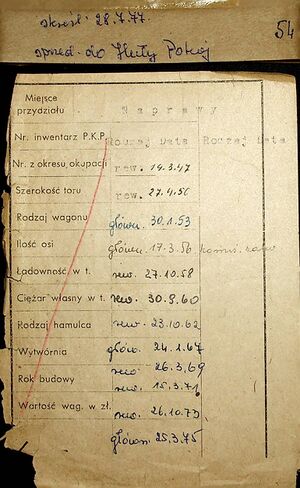 skreśl. 28.7.77. 54
sprzed. do Huty Pokój
Miejsce
przydziału
Naprawy
Nr. inwentarz P.K.P. Rodzaj Data Rodzaj Data
Nr. z okresu okupacji rew. 14.3.47
Szerokość toru rew. 27.4.50
Rodzaj wagonu główn. 30.1.53
Ilość osi główn. 17.3.56
Ładowność w t. rew. 27.10.58
Ciężar własny w t. rew. 30.9.60
Rodzaj hamulca rew. 23.10.62
Wytwórnia główn. 24.1.67
Rok budowy rew. 26.3.69
rew. 15.3.71
Wartość wag. w zł. rew. 26.10.73
główn. 25.3.75